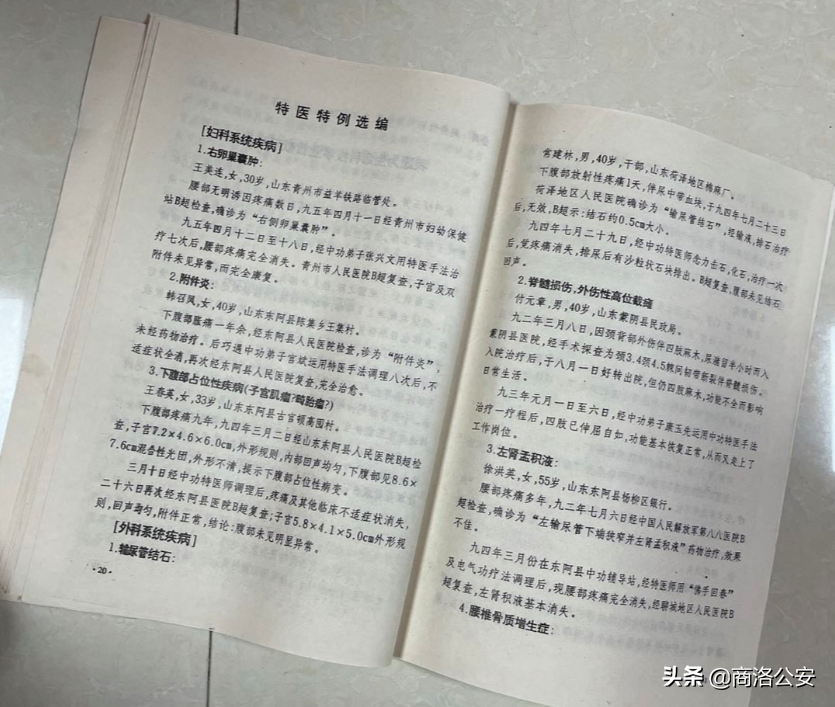 特医特例选编
[妇科系统疾病]
1.右卵巢囊肿:
王美连,女,30岁,山东青州市益羊铁路临管处。
腰部无明诱因疼痛数日,九五年四月十一日经青州市妇幼保健
站B超检查,确诊为“右侧卵巢囊肿”。
九五年四月十二日至十八日,经中功弟子张兴文用特医手法治
疗七次后,腰部疼痛完全消失。青州市人民医院B超复查,子宫及双
附件未见异常,而完全康复。
2.附件炎:
韩召凤,女,40岁,山东东阿县陈集乡王集村。
下腹部胀痛一年余,经东阿县人民医院检查,诊为“附件炎”,
未经药物治疗。后巧遇中功弟子宫斌运用特医手法调理八次后,不
适症状全消,再次经东阿县人民医院复查,完全治愈。
3.下腹部占位性疾病(子宫肌瘤?畸胎瘤?)
王春英,女,33岁,山东东阿县古官顿高园村。
下腹部疼痛九年,九四年三月二日经山东东阿县人民医院B超检
查,子宫7.2×4.6×6.0cm,外形规则,内部回声均匀,下腹部见8.6×
7.6cm混合性光团,外形不清,提示下腹部占位性病变。
三月十日经中功特医师调理后,疼痛及其他临床不适症状消失,
二十六日再次经东阿县医院B超复查;子宫5.8×4.1×5.0cm外形规
则,回声均匀,附件正常,结论:腹部未见明显异常。
[外科系统疾病]
1.输尿管结石:
·20·
常建林,男,40岁,干部,山东荷泽地区棉麻厂。
下腹部放射性疼痛1天,伴尿中带血块,于九四年七月二十三日
荷泽地区人民医院确诊为“输尿管结石”,经输液,排石治疗
后,无效,B超示:结石约0.5cm大小。
九四年七月二十九日,经中功特医师念力击石,化石,治疗一次
后,觉疼痛消失,排尿后有沙粒状石块排出。B超复查,腹部未见结石
回声。
2.脊髓损伤,外伤性高位截瘫
付元章,男,40岁,山东蒙阴县民政局。
九二年三月八日,因颈背部外伤伴四肢麻木,尿潴留半小时而入
蒙阴县医院,经手术探查为颈3.4颈4.5棘间韧带断裂伴脊髓损伤。
入院治疗后,于八月一日好转出院,但仍四肢麻木,功能不全而影响
日常生活。
九三年元月一日至六日,经中功弟子康玉先运用中功特医手法
治疗一疗程后,四肢已伸屈自如,功能基本恢复正常,从而又走上了
工作岗位。
3.左肾盂积液:
徐洪英,女,55岁,山东东阿县杨柳区银行。
腰部疼痛多年,九二年七月六日经中国人民解放军第八八医院B
超检查,确诊为“左输尿管下端狭窄并左肾盂积液”药物治疗,效果
不佳。
九四年三月份在东阿县中功辅导站,经特医师用“佛手回春”
及电气功疗法调理后,现腰部疼痛完全消失,经聊城地区人民医院B
超复查,左肾积液基本消失。
4.腰椎骨质增生症:
头条 @商洛公安